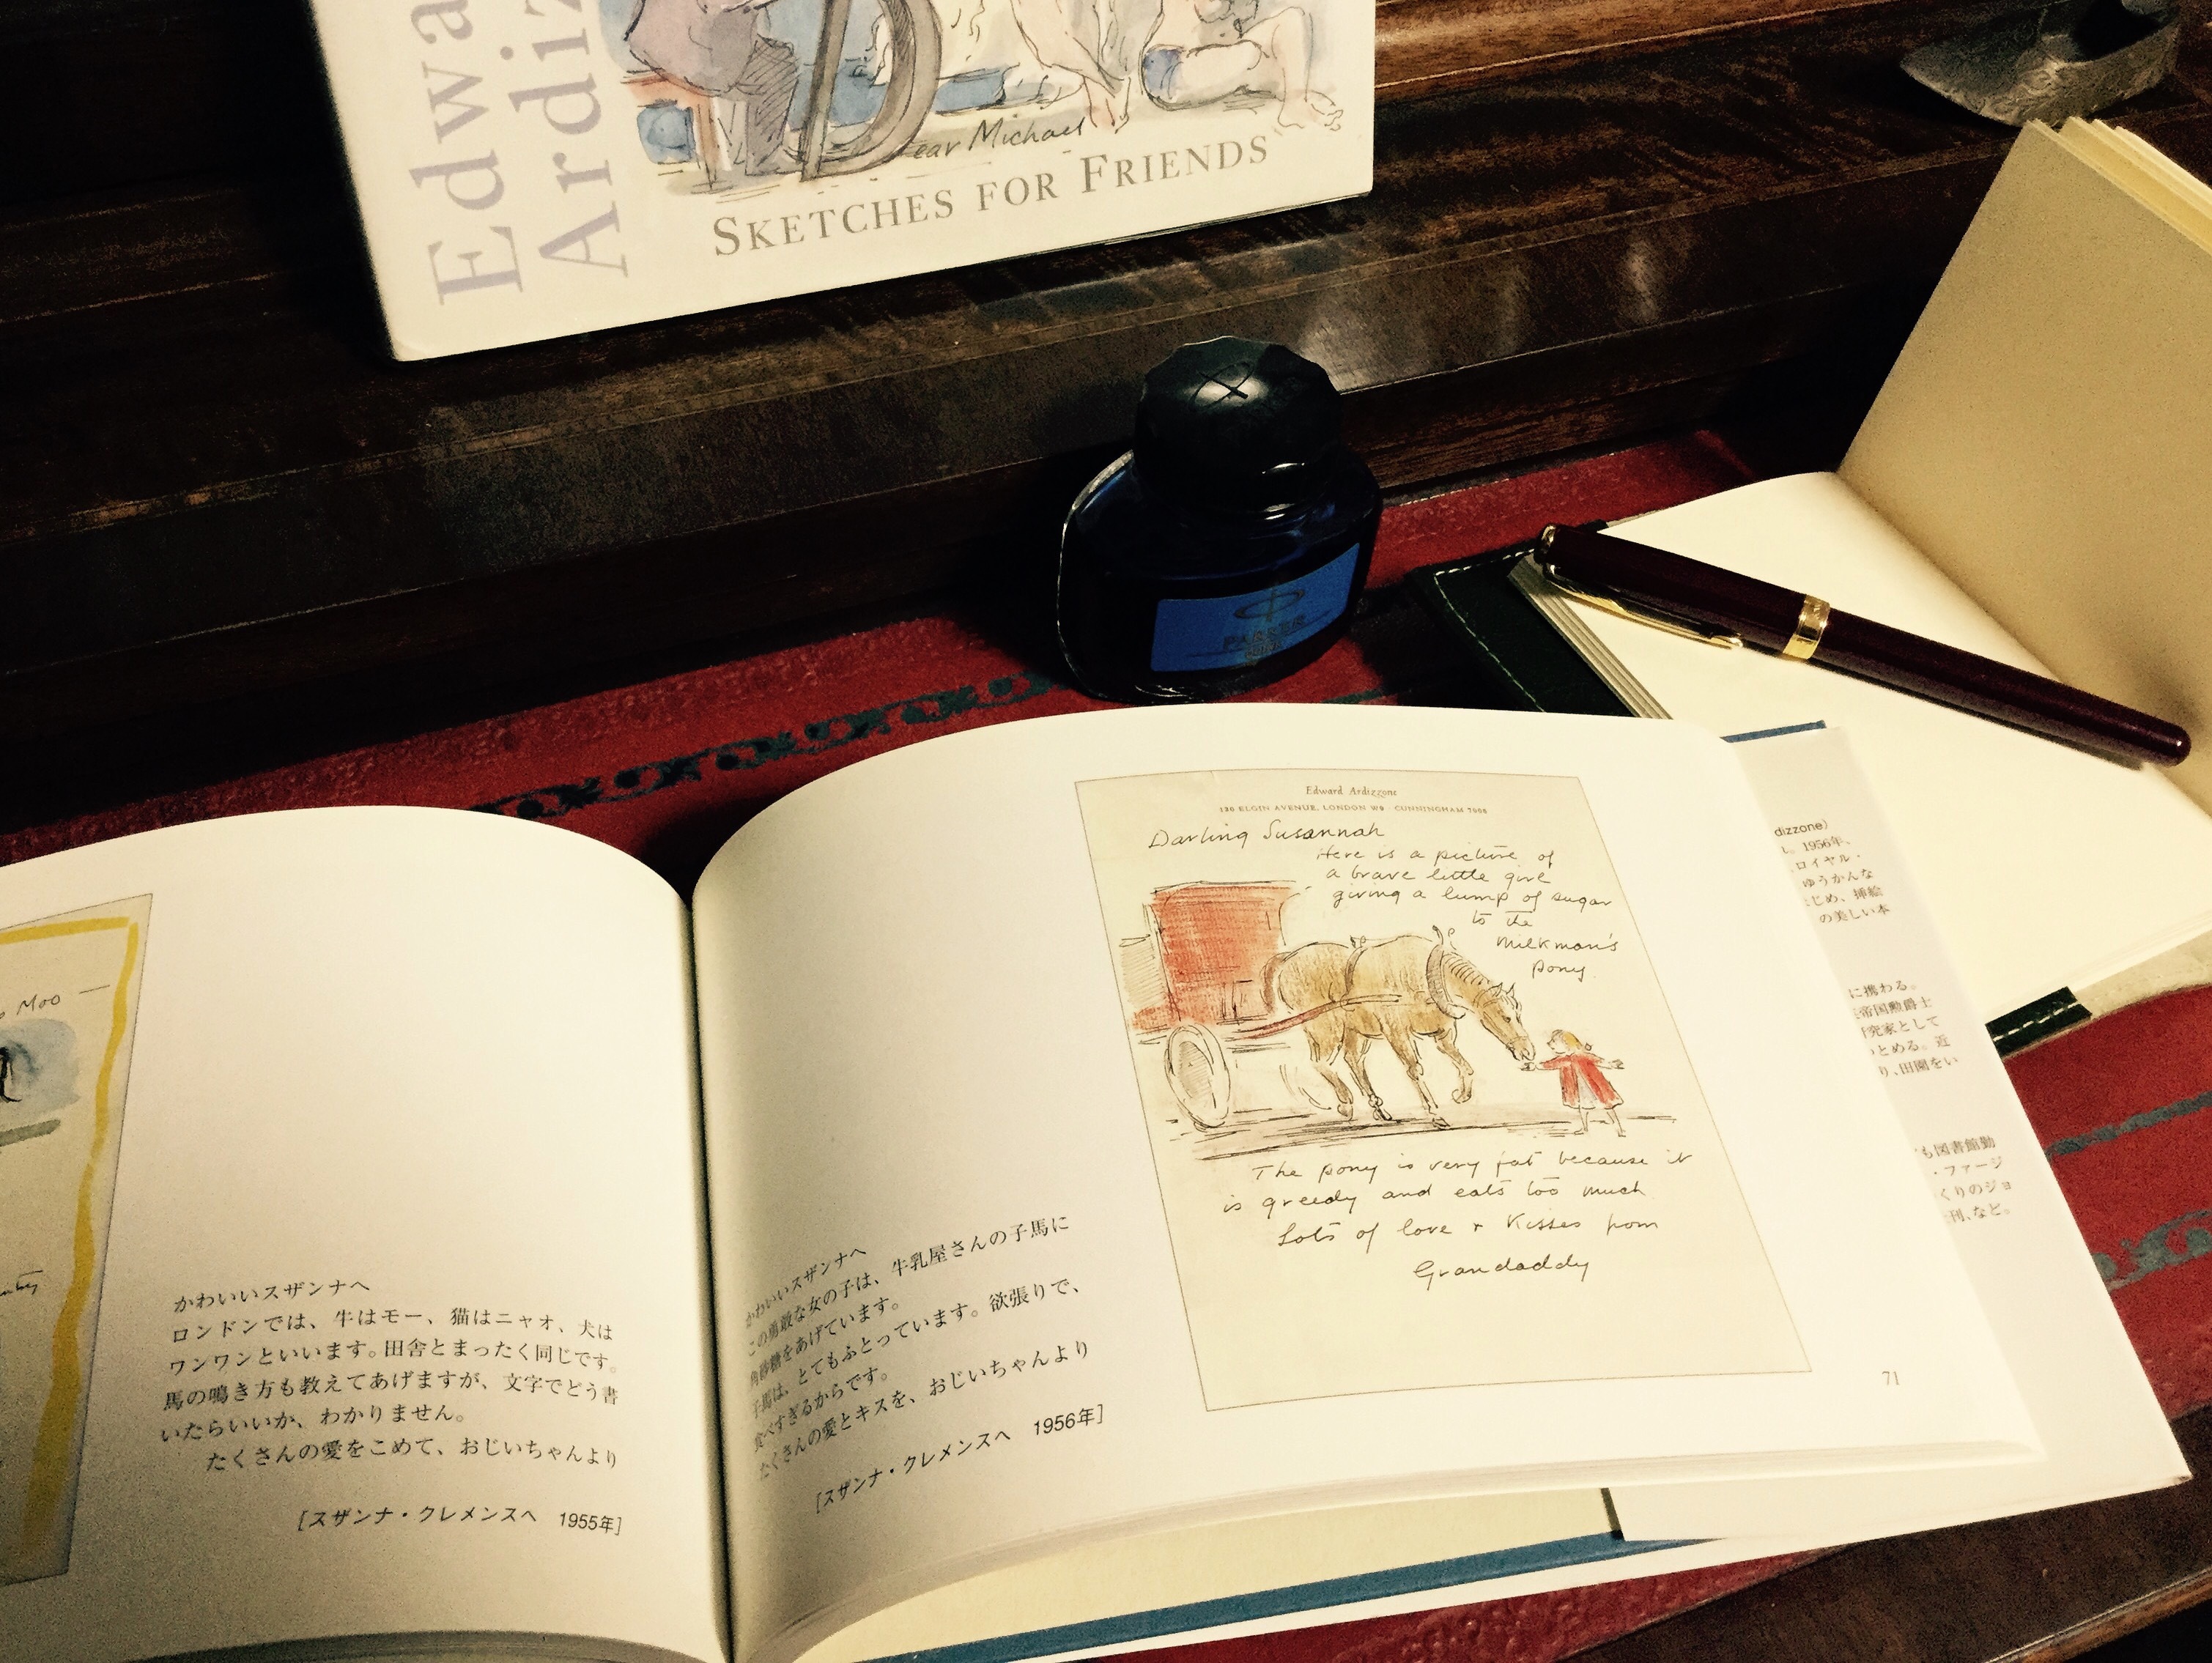 Edwa
Ardiz
ear Michael
SKETCHES FOR FRIENDS
PARKER
Moo —
かわいいスザンナへ
ロンドンでは、牛はモー、猫はニャオ、犬は
ワンワンといいます。田舎とまったく同じです。
馬の鳴き方も教えてあげますが、文字でどう書
いたらいいか、わかりません。
たくさんの愛をこめて、おじいちゃんより
[スザンナ・クレメンスへ 1955年]
かわいいスザンナへ
この勇敢な女の子は、牛乳屋さんの子馬に
角砂糖をあげています。
子馬は、とてもふとっています。欲張りで、
食べすぎるからです。
たくさんの愛とキスを、おじいちゃんより
[スザンナ・クレメンスへ 1956年]
Edward Ardizzone
130 ELGIN AVENUE, LONDON W9 · CUNNINGHAM 7006
Darling Susannah
Here is a picture of
a brave little girl
giving a lump of sugar
to the
milkman's
pony.
The pony is very fat because it
is greedy and eats too much
Lots of love + Kisses from
Grandaddy
71
dizzone)
1956年、
ロイヤル・
ゆうかんな
じめ、挿絵
の美しい本
に携わる。
帝国勲爵士
究家として
とめる。近
り、田園をい
も図書館勤
・ファージ
くりのジョ
刊、など。